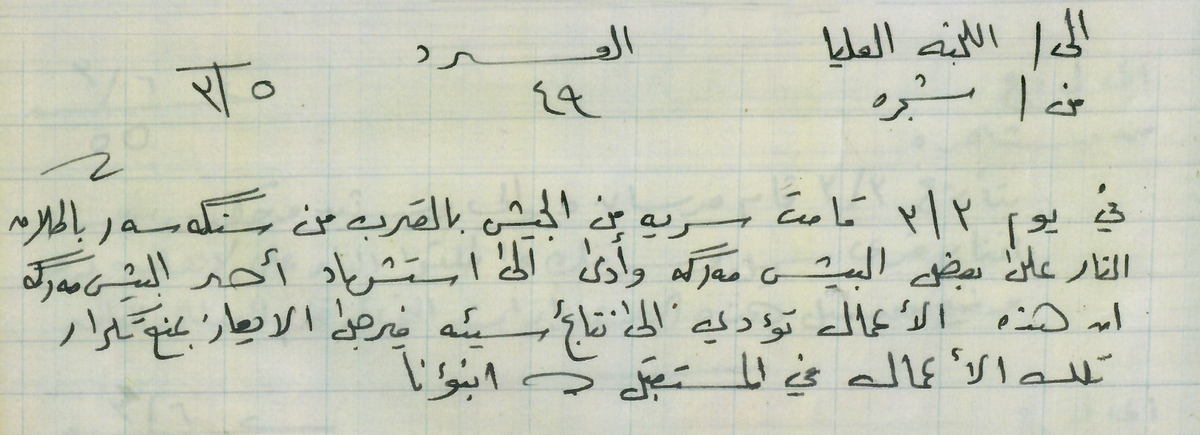 الى / اللجنه العليا العدد ٥/٣
من / شجره ٤٩
في يوم ٣/٣ قامت سريه من الجيش بالقرب من سنگه سه ر باطلاق
النار على بعض البيش مه رگه وأدى الى استشهاد أحد البيش مه رگه
ان هذه الأعمال تؤدي الى نتائج سيئه فيرجى الايعاز بمنع تكرار
تلك الأعمال في المستقبل انبؤنا